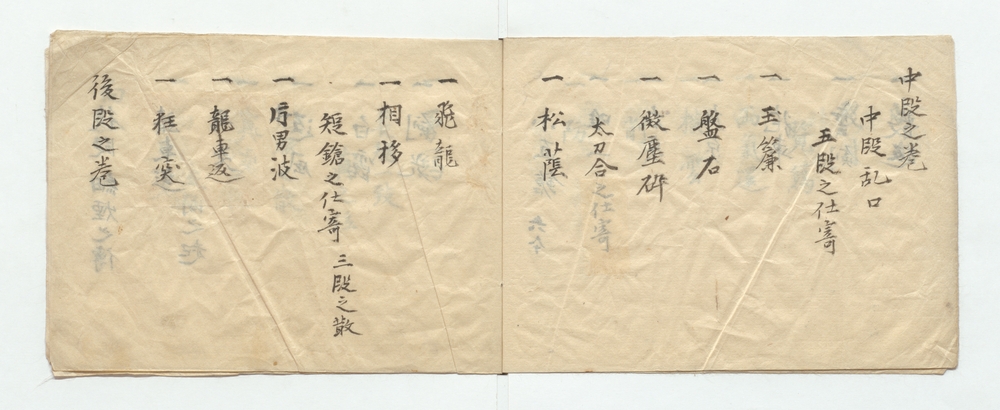 中段之巻
中段乱口
五段之仕寄
一 玉簾
一 盤石
一 微塵砕
太刀合之仕寄
一 松蔭
一 飛龍
一 相移
短鎗之仕寄 三段之散
一 片男波
一 龍車返
一 狂突
後段之巻